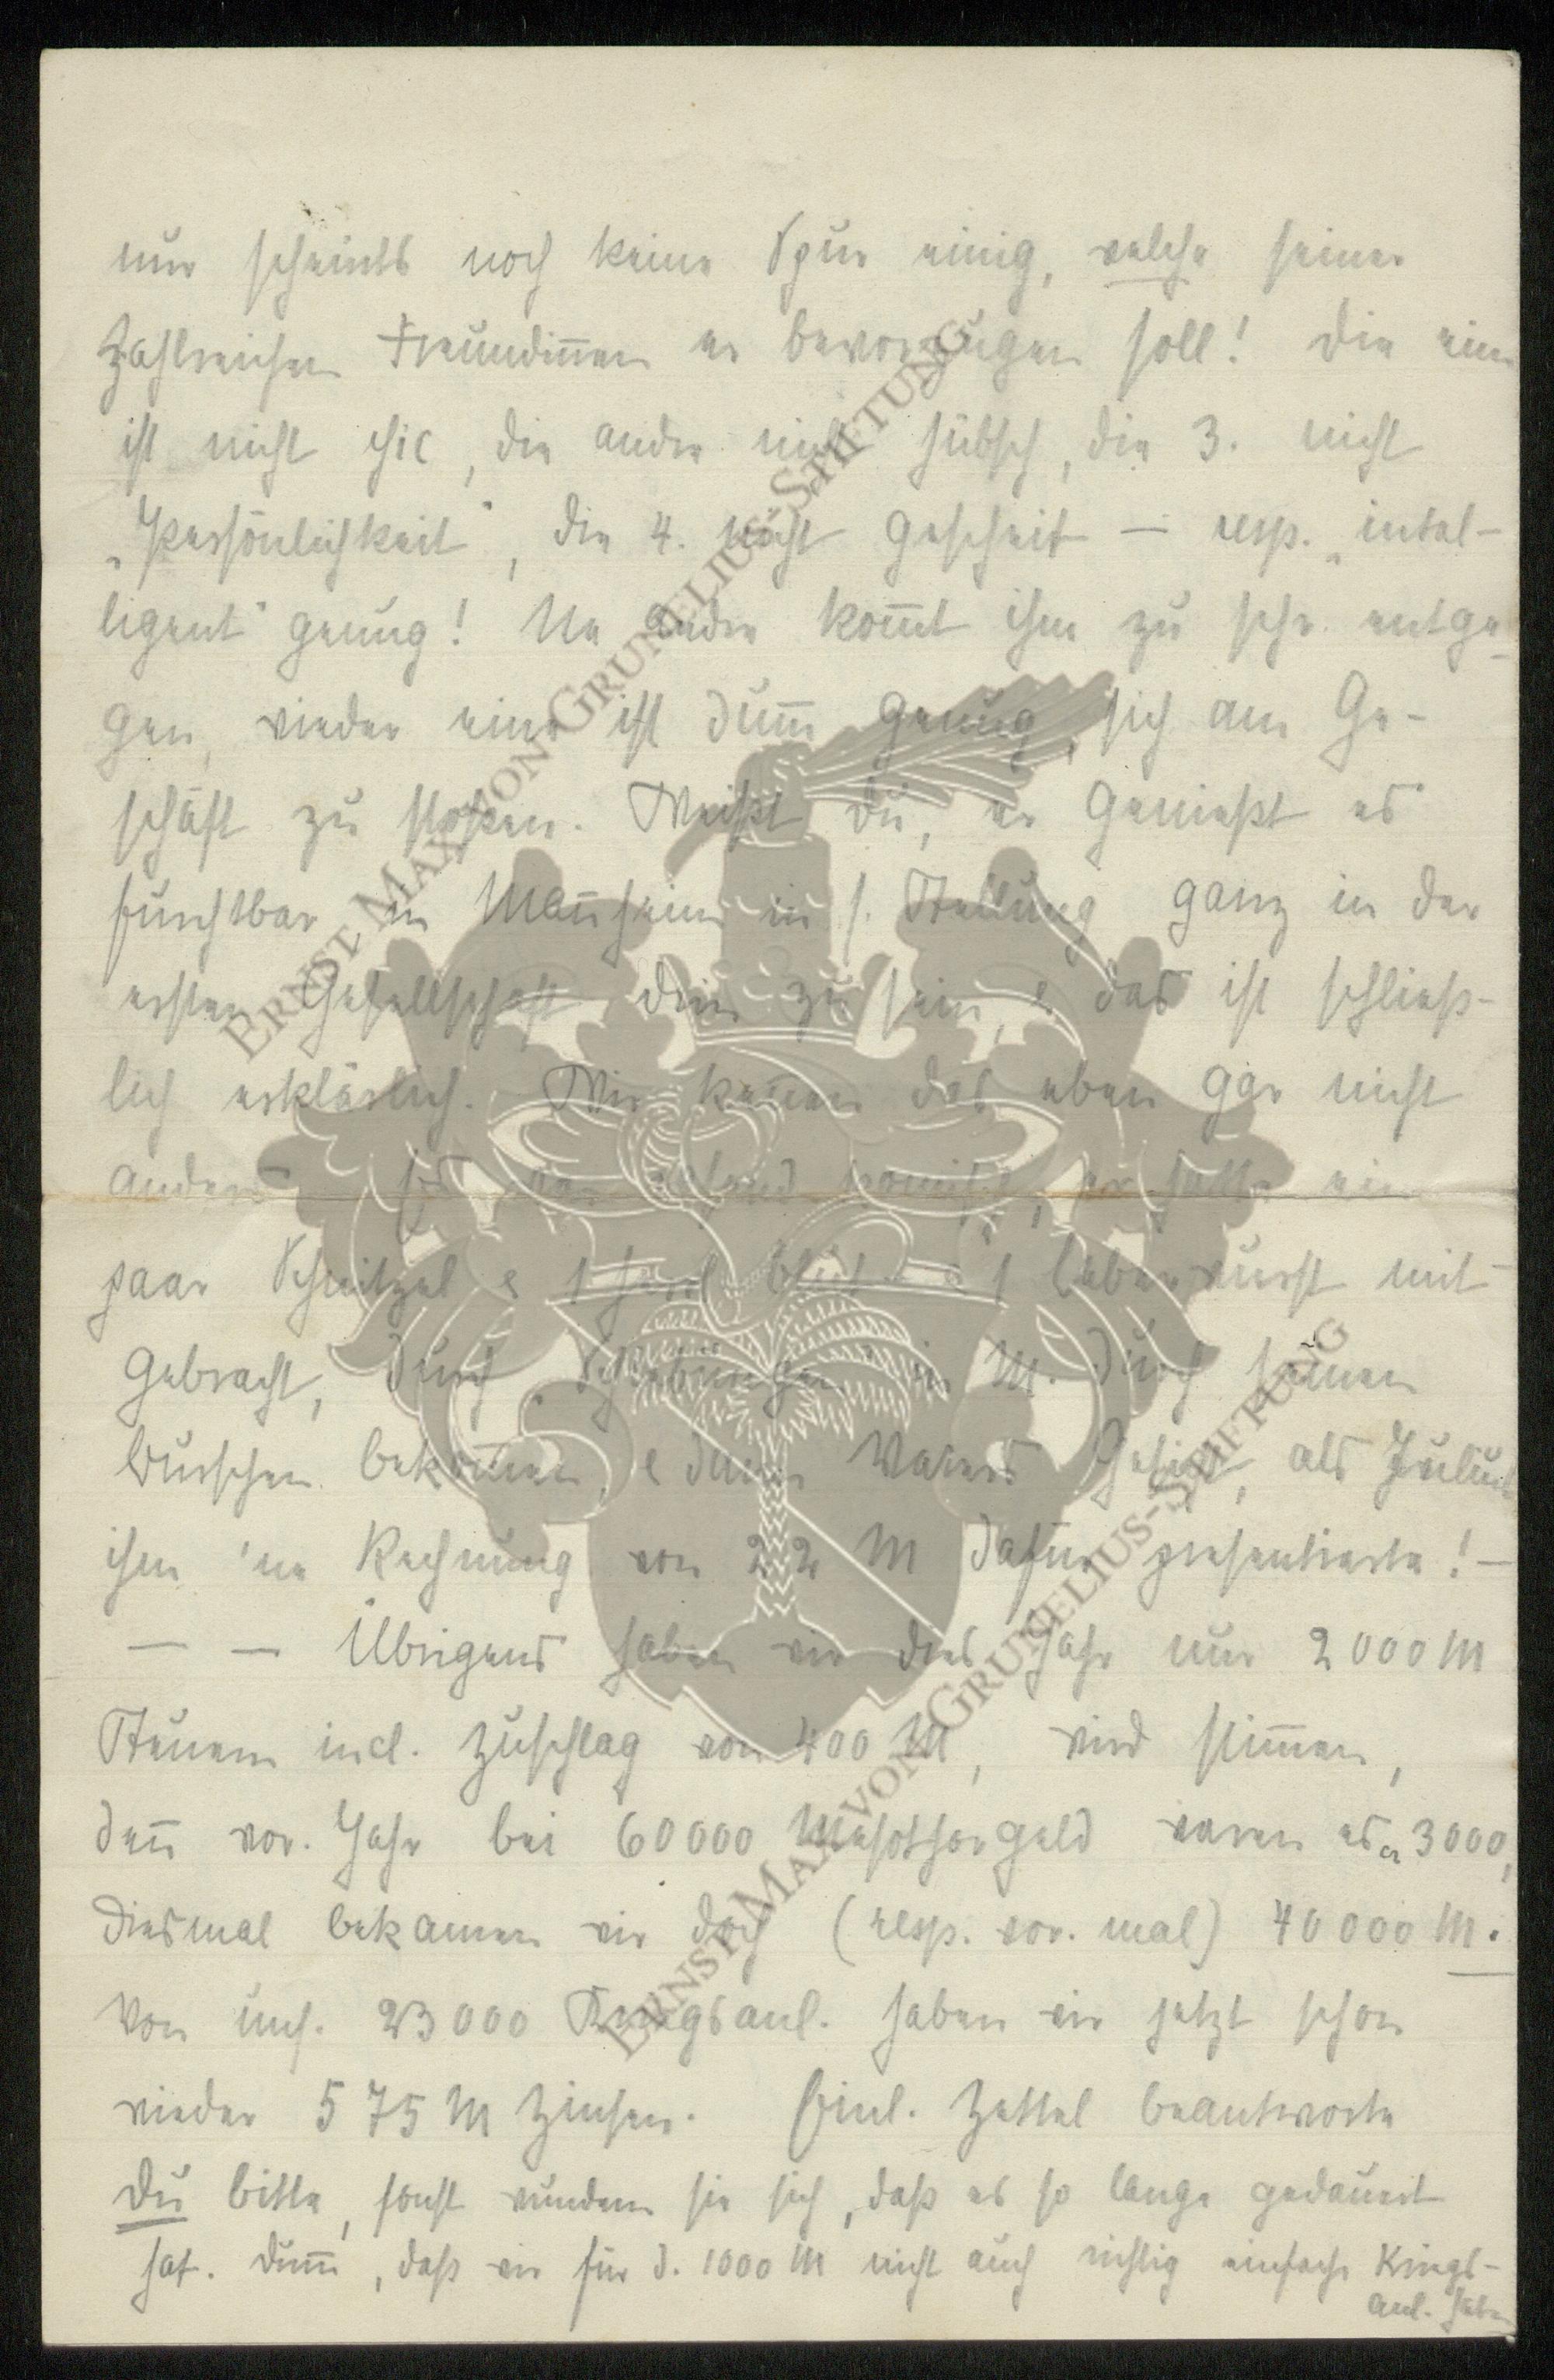 nur scheints noch keine Spur einig, welche seiner
zahlreichen Freundinnen er bevorzugen soll! Die eine
ist nicht chic, die andre nicht hübsch, die 3. nicht
„Persönlichkeit", die 4. nicht gescheit — resp. „intel-
ligent" genug! Ne andre kom̅t ihm zu sehr entge-
gen, wieder eine ist dum̅ genug, sich am Ge-
schäft zu stoßen. Weißt du, er genießt es
furchtbar in Man̅heim in s. Stellung ganz in der
ersten Gesellschaft drin zu sein, & das ist schließ-
lich erklärlich. Wir ken̅en das eben gar nicht
anders. er hatte ein
paar Schnitzel & 1 & 1 Leberwurst mit-
gebracht, durch in M. durch seinen
Burschen bekom̅en, & dann Vaters Gesicht, als Julius
ihm 'ne Rechnung von 22 M dafür presentierte! —
— — Übrigens haben wir dies Jahr nur 2000 M
Steuern incl. Zuschlag von 400 M, wird stim̅en,
den̅ vor. Jahr bei 60000 geld waren es 3000,
diesmal bekamen wir doch (resp. vor. mal) 40000 M.
Von uns. 23000 Kriegsanl. haben wir jetzt schon
wieder 575 M Zinsen. Einl. Zettel beantworte
Du bitte, sonst wundern sie sich, daß es so lange gedauert
hat. Dum̅, daß wir für d. 1000 M nicht auch richtig einfach Kriegs-
anl. haben
ERNST MAX VON GRUNELIUS-STIFTUNG
ERNST MAX VON GRUNELIUS-STIFTUNG